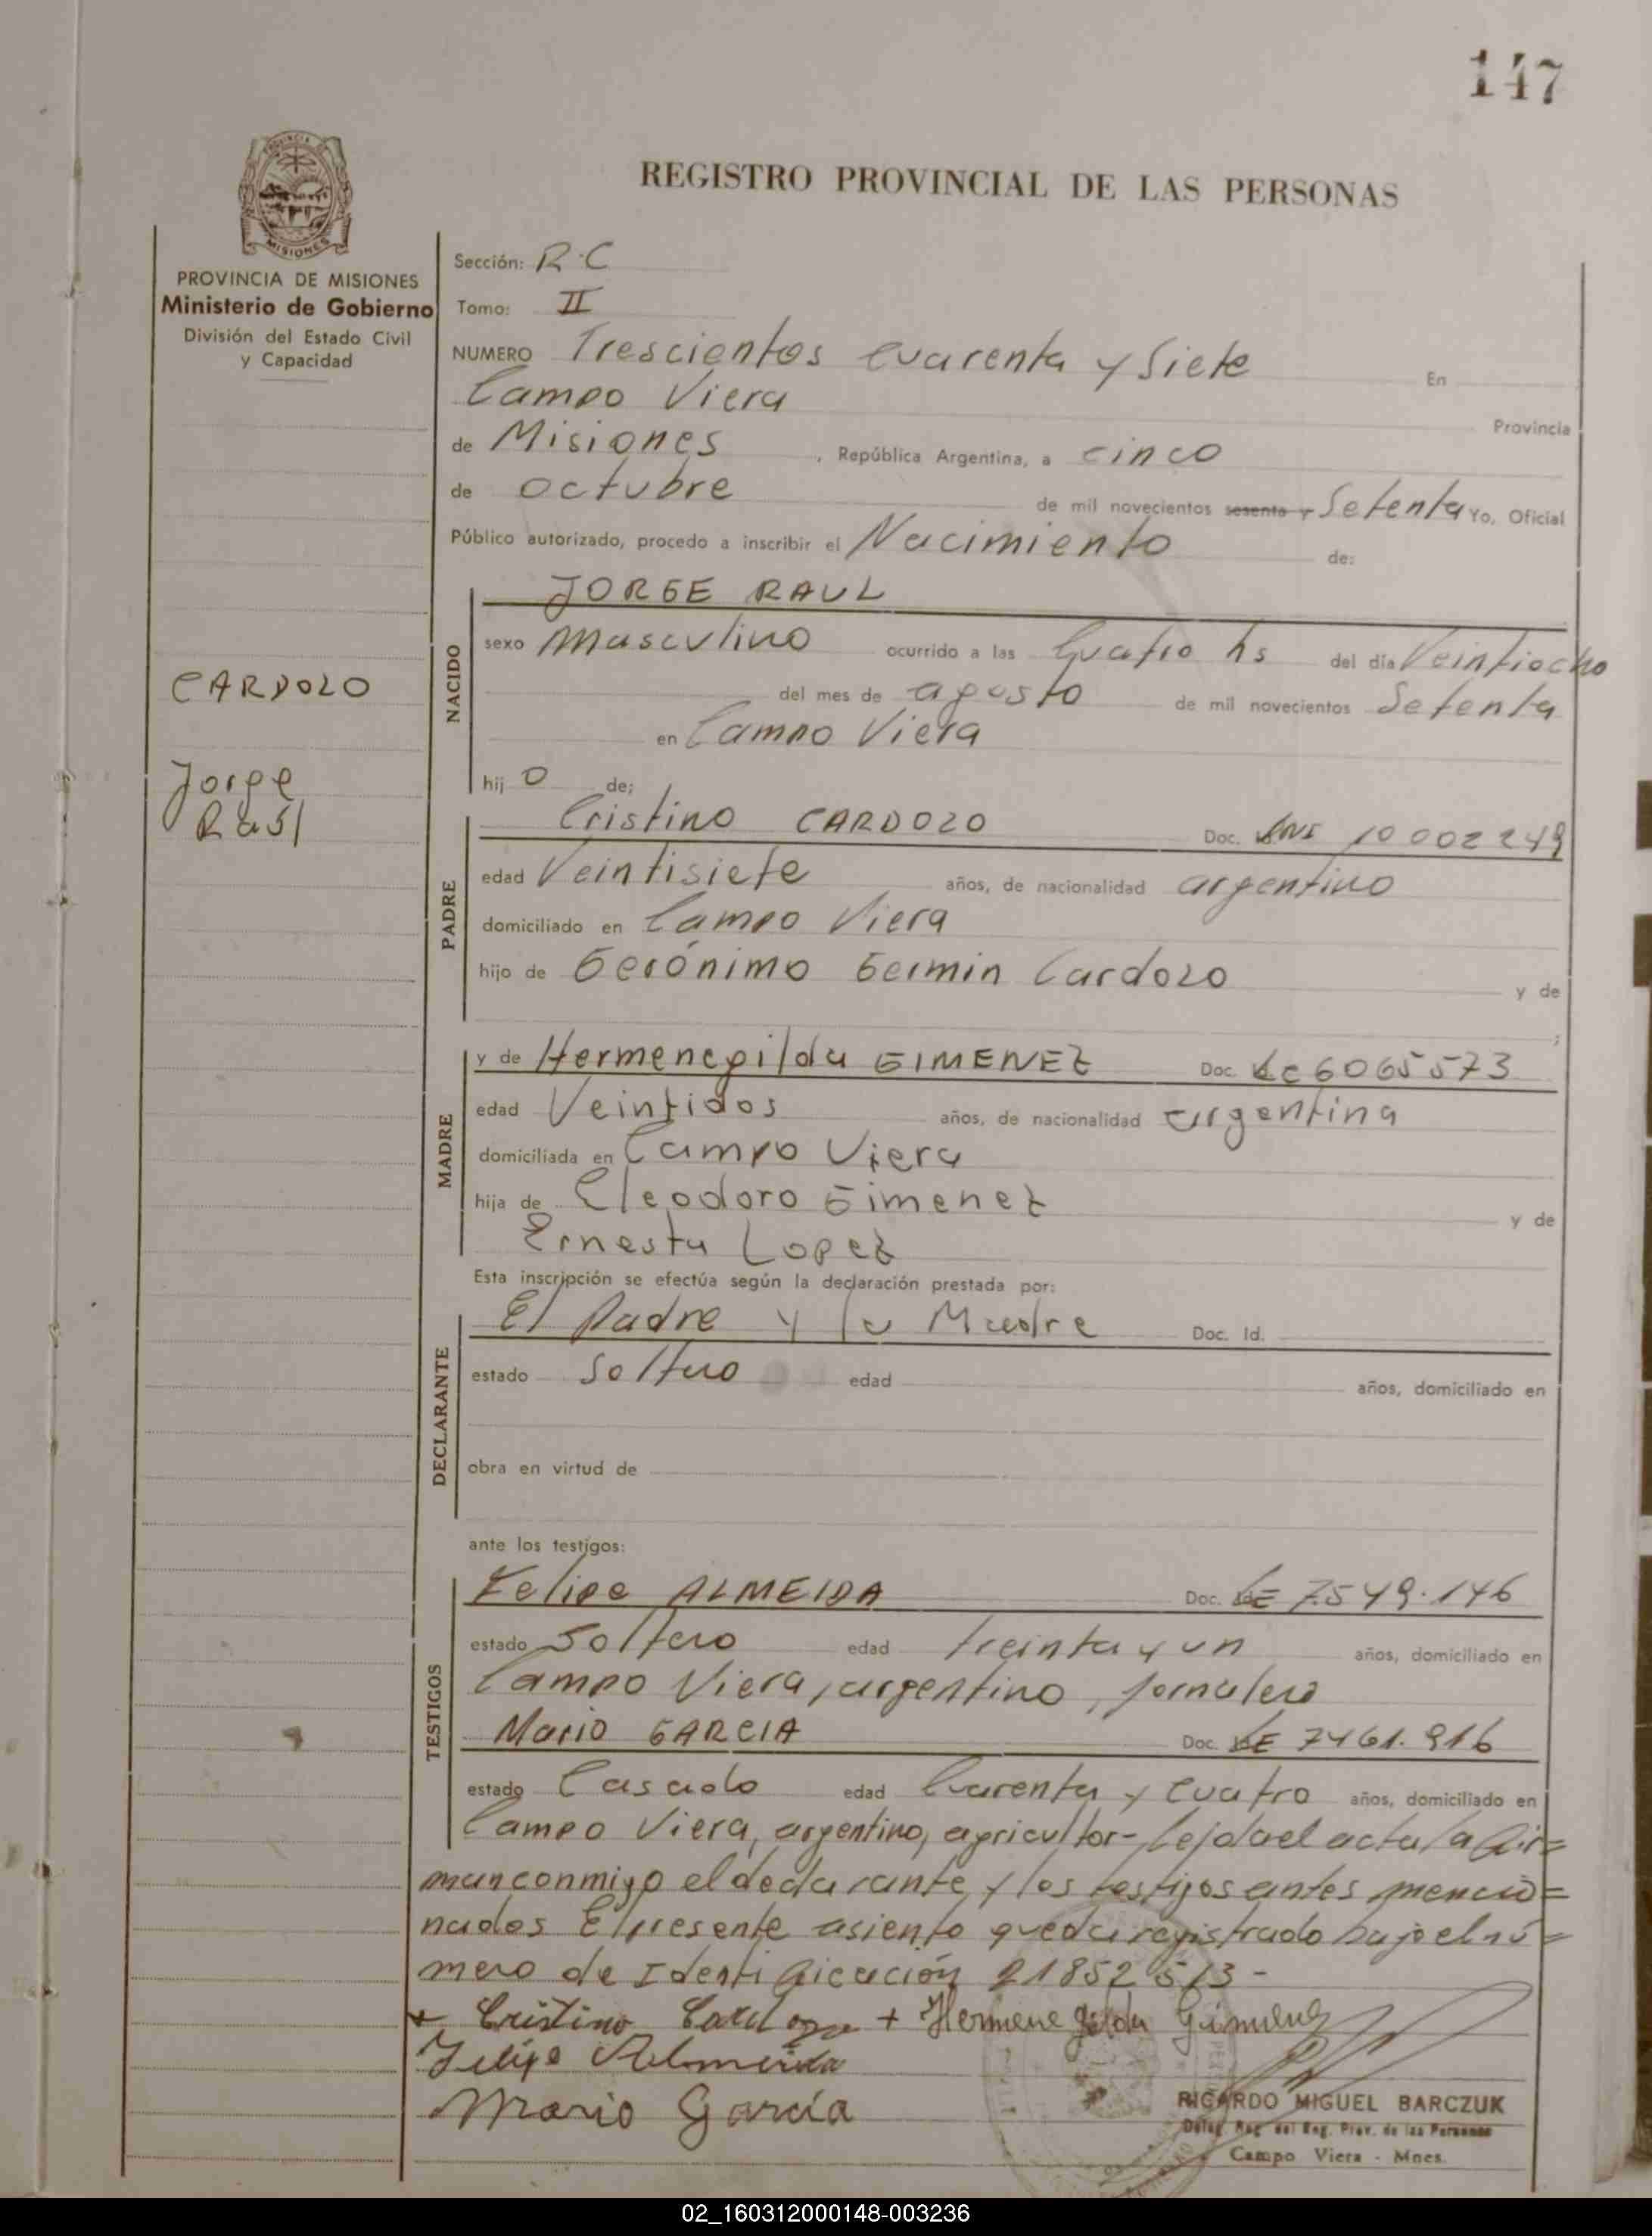 147
REGISTRO PROVINCIAL DE LAS PERSONAS
MISIONES
PROVINCIA DE MISIONES
Ministerio de Gobierno
División del Estado Civil
y Capacidad
Sección: R.C
Tomo: II
NUMERO Trescientos cuarenta y Siete En
Campo Viera Provincia
de Misiones, República Argentina, a cinco
de octubre de mil novecientos sesenta y Setenta Yo, Oficial
Público autorizado, procedo a inscribir el Nacimiento de:
CARDOZO
Jorge
Raúl
NACIDO
JORGE RAUL
sexo Masculino ocurrido a las Cuatro hs del día Veintiocho
del mes de agosto de mil novecientos Setenta
en Campo Viera
hij o de;
PADRE
Cristino CARDOZO Doc. 10 002 249
edad Veintisiete años, de nacionalidad argentino
domiciliado en Campo Viera
hijo de Gerónimo Germin Cardozo y de
;
MADRE
y de Hermenegilda GIMENEZ Doc. LC 6065573
edad Veintidos años, de nacionalidad argentina
domiciliada en Campo Viera
hija de Eleodoro Gimenez y de
Ernesta Lopez
Esta inscripción se efectúa según la declaración prestada por:
DECLARANTE
El Padre y la Madre Doc. Id.
estado Soltero edad años, domiciliado en
obra en virtud de
ante los testigos:
TESTIGOS
Felipe ALMEIDA Doc. LE 7.549.146
estado Soltero edad treinta y un años, domiciliado en
Campo Viera, argentino, jornalero
Mario GARCIA Doc. LE 7461.916
estado Casado edad Cuarenta y cuatro años, domiciliado en
Campo Viera, argentino, agricultor- Leida el acta la fir=
man conmigo el declarante y los testigos antes mencio=
nados El presente asiento queda registrado bajo el nú=
mero de Identificación 21852513-
+ Cristino Cardozo + Hermenegilda Gimenez
Felipe Almeida
Mario García
RICARDO MIGUEL BARCZUK
Deleg. Reg. del Reg. Prov. de las Personas
Campo Viera - Mnes.
02_160312000148-003236